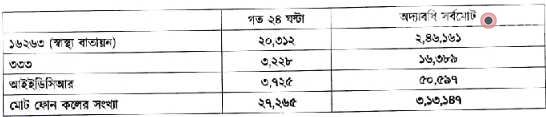 গত ২৪ ঘন্টা অদ্যাবধি সর্বমোট
১৬২৬৩ (স্বাস্থ্য বাতায়ন) ২০,৩১২ ২,৪৬,১৬১
৩৩৩ ৩,২২৮ ১৬,৩৮৯
আইইডিসিআর ৩,৭২৫ ৫০,৫৯৭
মোট ফোন কলের সংখ্যা ২৭,২৬৫ ৩,১৩,১৪৭